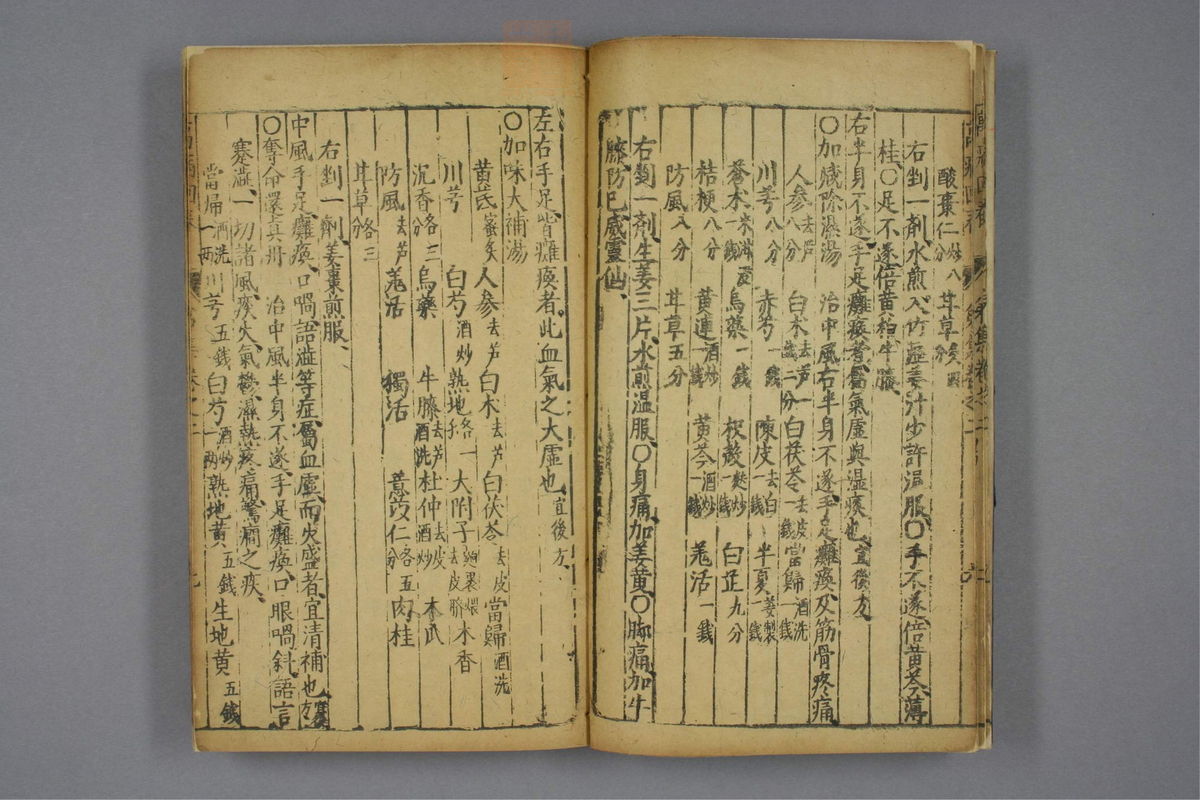 酸棗仁炒八分 甘草炙四分
右剉一劑水煎入竹瀝姜汁少許温服〇手不遂倍黄芩薄
桂〇足不遂倍黄柏牛膝
右半身不遂手足癱瘓者屬氣虚與湿痰也宜後方
〇加减除濕湯 治中風右半身不遂手足癱瘓及筋骨疼痛
人參去芦八分 白术去芦一錢二分 白茯苓去皮一錢 當歸酒洗一錢
川芎八分 赤芍一錢 陳皮去白一錢 半夏姜製一錢
蒼术米泔浸一錢 烏藥一錢 枳殻麩炒一錢 白芷九分
桔梗八分 黄連酒炒一錢 黄芩酒炒一錢 羗活一錢
防風八分 甘草五分
右剉一劑生姜三片水煎温服〇身痛加姜黄〇脚痛加牛
膝防已威靈仙
左右手足皆癱瘓者此血氣之大虚也宜後方
〇加味大補湯
黄芪蜜炙 人參去芦 白术去芦 白伏苓去皮 當歸酒洗
川芎 白芍酒炒 熟地各一 大附子麵裹煨去皮臍 木香
沉香各三 烏藥 牛膝去芦酒洗 杜仲去皮酒炒 木瓜
防風去芦 羗活 獨活 薏苡仁各五分 肉桂
甘草各三分
右剉一劑姜棗煎服
中風手足癱瘓口喎語澁等症屬血虚而火盛者宜清補也
〇奪命還真丹 治中風半身不遂手足癱瘓口眼喎斜語言
蹇澁一切諸風痰火氣鬱濕熱疼痛篤癎之疾
當歸酒洗一兩 川芎五錢 白芍酒炒一兩 熟地黄五錢 生地黄五錢